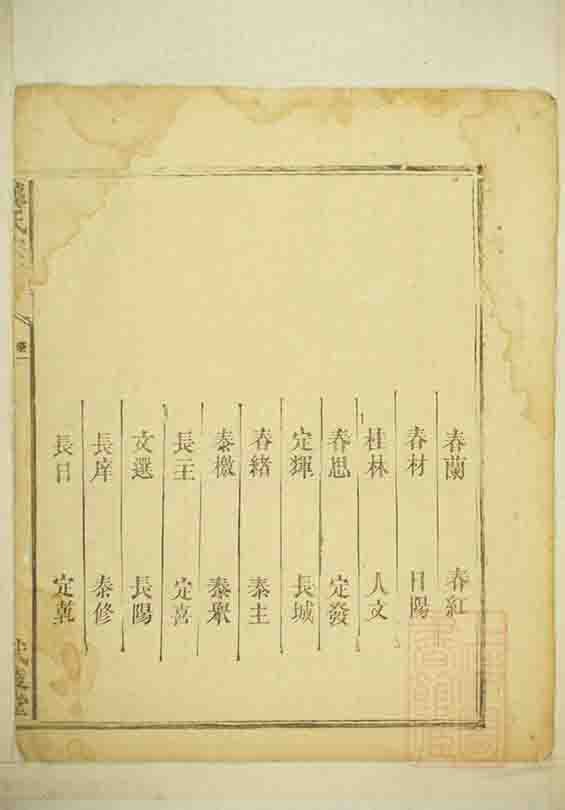 春蘭 春紅
春材 日陽
桂林 人文
春思 定發
定輝 長城
春緒 泰主
泰檄 泰聚
長王 定喜
文選 長陽
長庠 泰修
長日 定乾
氏
卷一
武陵堂